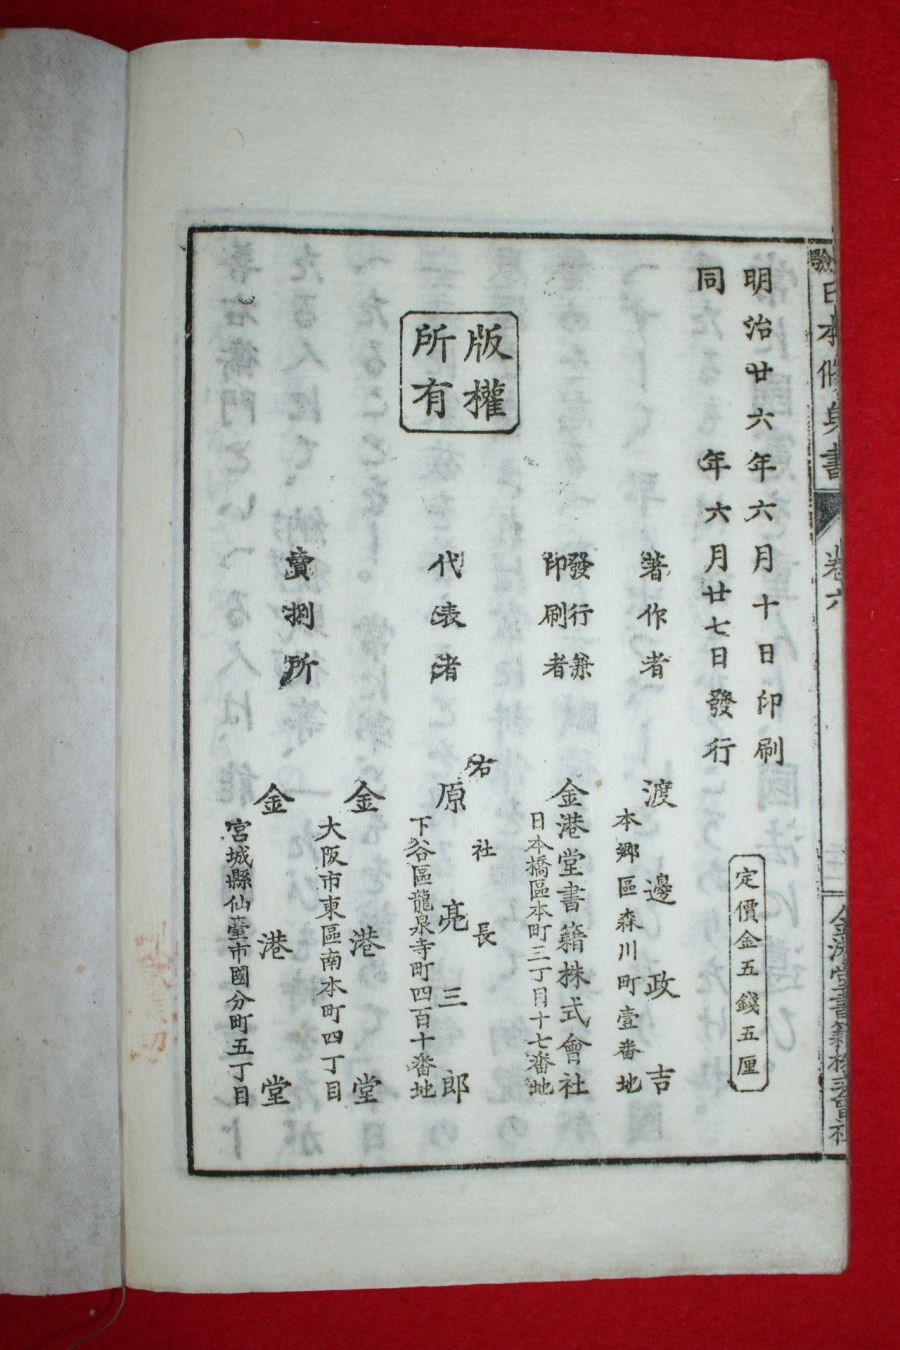 明治廿六年六月十日印刷
同年六月廿七日發行
版權
所有
定價金五錢五厘
著作者
本鄕區森川町壹番地
渡邊政吉
發行兼
印刷者
日本橋區本町三丁目十七番地
金港堂書籍株式會社
代表者
右社長
原亮三郎
下谷區龍泉寺町四百十番地
賣捌所
金港堂
大阪市東區南本町四丁目
金港堂
宮城縣仙臺市國分町五丁目
日本修身書
卷六
金港堂書籍株式會社